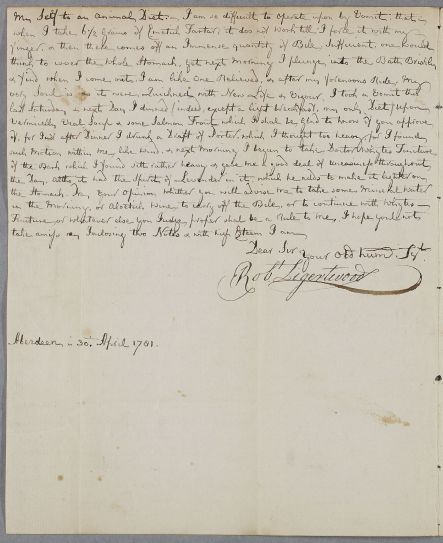 my Self to an animal Diet. I am so difficult to operate upon by Vomit: that
when I take 6½ Grains of Emetick Tartar, it does not work till I force it with my
finger, & then there comes off an Immense quantity of Bile, Sufficient, one would
think to cover the whole Stomach. yet next Morning I plunge into the Bath Briskly
& find when I come out, I am like one Relieved, & after my forenoons Ride, My
very Soul is as it were Quickned with New Life & Vigour. I took a Vomit this
last Saturday & next Day I dined / indeed except a light Breakfast, my only Diet / upon
Vermicelly Veal Soup & some Salmon Trout which I shall be glad to know if you approve
of, for I nd after Dinner I drank a Draft of Porter which I thought too heavy, for I found
such Motion within me, like wind. & next Morning I began to take Doctor Whytes Tincture
of the Bark, which I found sitt rather heavy & gave me a good deal of uneasiness throughout
the Day, altho it had the Spirits of Lavender in it, which he adds to make it light on
the Stomach. In your Opinion, whether you will advise me to take some Mineral Water
in the Morning, or Alloetick Wine to carry off the Bile, or to continue with Whytes
Tincture or whatever else you Judge proper shall be a Rule to me, I hope youl not
take amiss my Inclosing two Notes & with high Esteem I am
Dear Sir your Old hum. Ser.t
Rob.t Ligertwood
Aberdeen 30. April 1781.